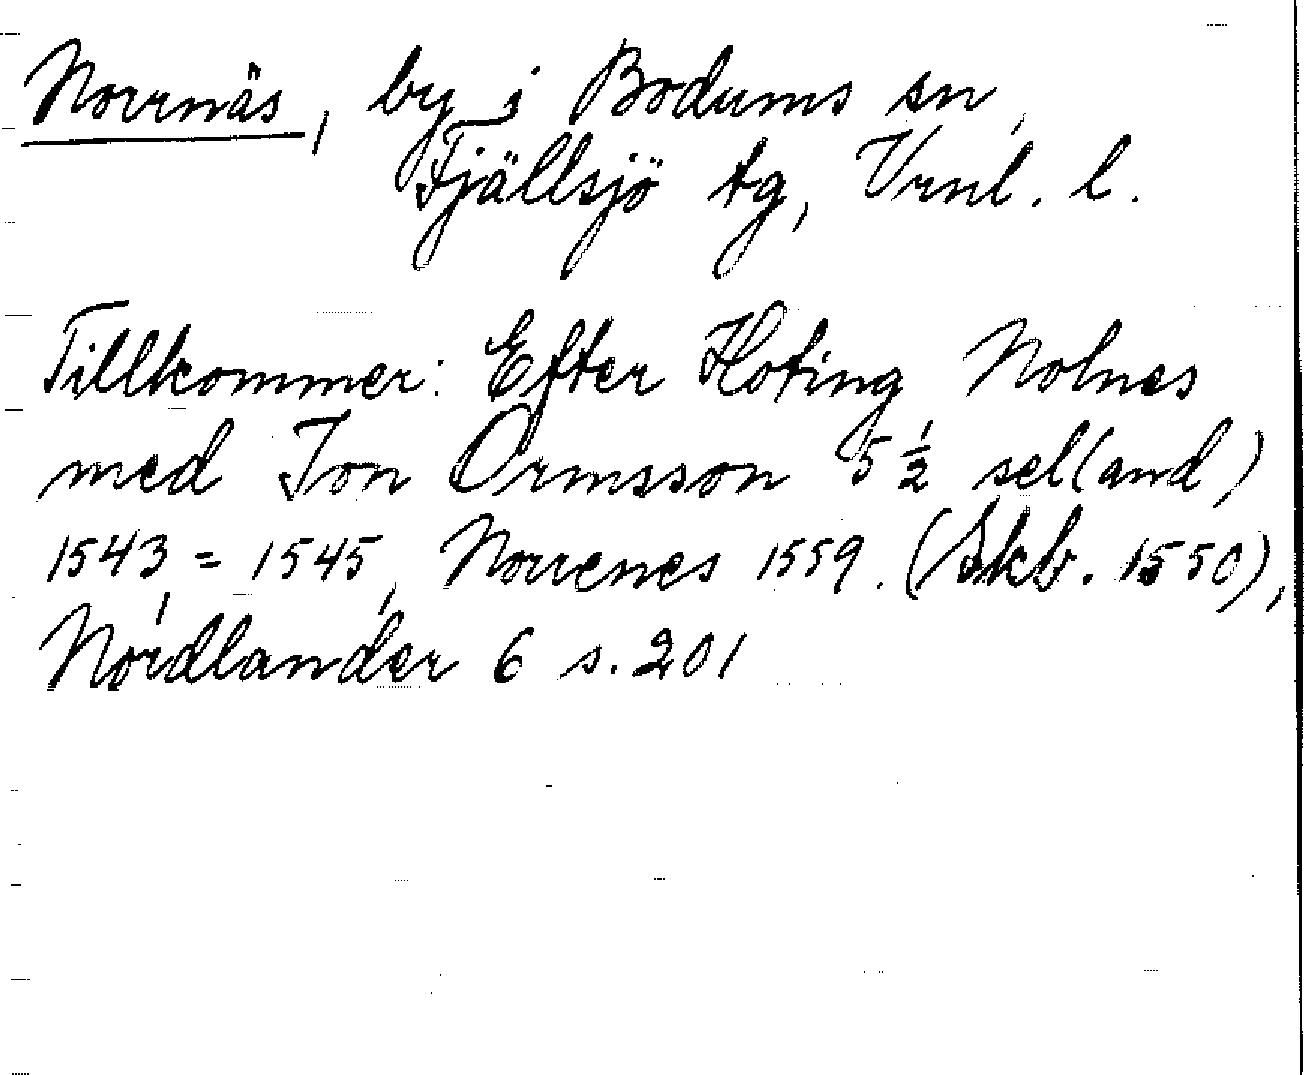 Norrnäs, by i Bodums sn,
Fjällsjö tg, Vrnl. l.
Tillkommer: Efter Hoting Nolnes
med Jon Ormsson 5 ½ sel(and)
1543, = 1545, Norrenes 1559. (Skb. 1550),
Nordlander 6 s. 201